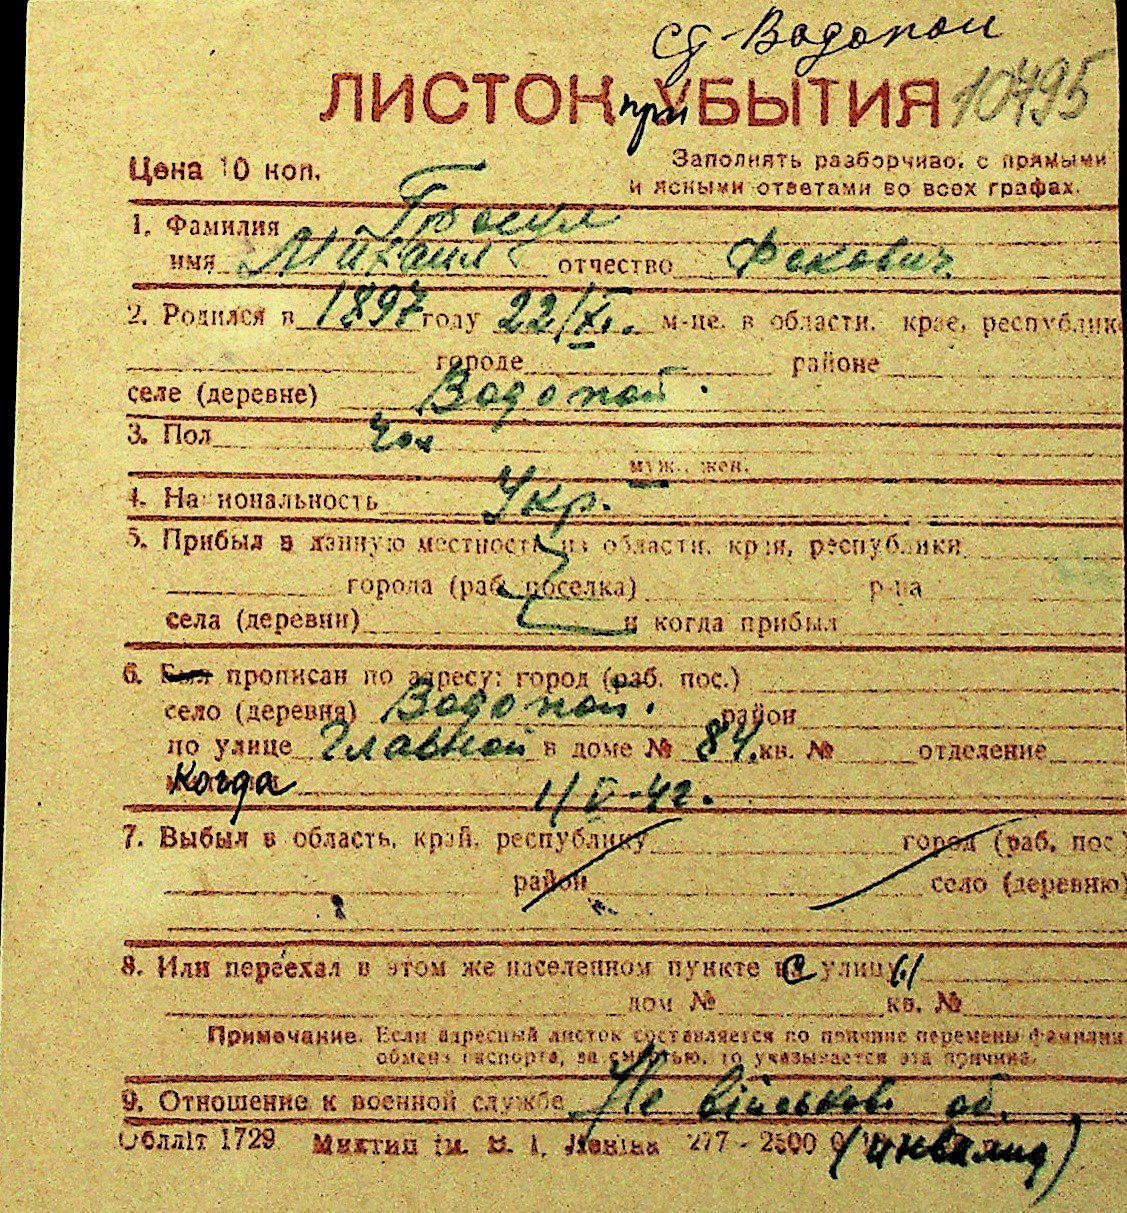 с. Водопой
ЛИСТОК при УБЫТИЯ 10495
Цена 10 коп.
Заполнять разборчиво, с прямыми
и ясными ответами во всех графах.
1. Фамилия
имя Михаил отчество
2. Родился в 1897 году 22/XI. м-це, в области, крае, республике
городе районе
селе (деревне) Водопой.
3. Пол Чол
муж., жен.
4. На иональность Укр.
5. Прибыл в данную местность из области, края, республики
города (раб. поселка) р-на
села (деревни) и когда прибыл
6. Был прописан по адресу: город (раб. пос.)
село (деревня) Водопой. район
по улице Главной в доме № 84. кв. № отделение
когда 1/V-42.
7. Выбыл в область, край, республику город (раб. пос.)
район село (деревню)
8. Или переехал в этом же населенном пункте с улицы
дом № кв. №
Примечание. Если адресный листок составляется по причине перемены фамилии,
обмена паспорта, за смертью, то указывается эта причина.
9. Отношение к военной службе Не військовоб.
(инвалид)
Облліт 1729 Миктип ім. В. І. Леніна 277 - 2500